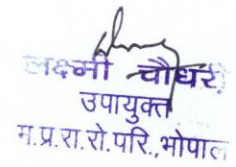 लक्ष्मी चौधरी
उपायुक्त
म.प्र.रा.रो.परि.,भोपाल